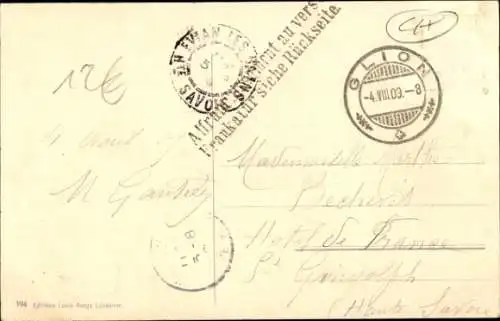 12€
CH
EVIAN LES
SAVOIE
Affranchissement au verso
Frankatur siehe Rückseite.
GLION
-4.VIII.09.-8
4 août 09
M Gaudey
Mademoiselle Marthe
Hotel de France
St Gingolph
(Haute Savoie
994 Edition Louis Burgy Lausanne